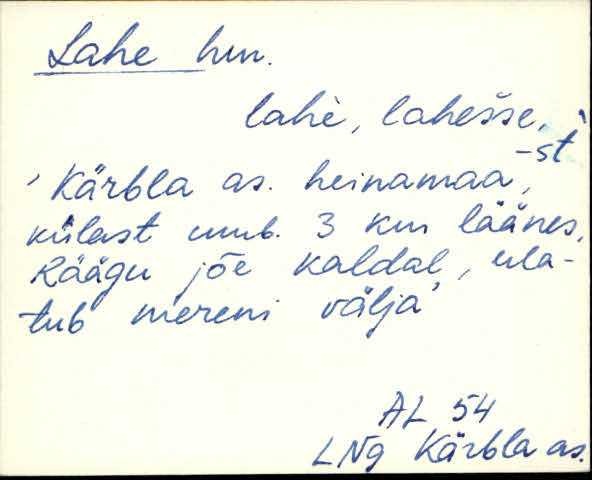 Lahe hm.
lahè, lahešse, -st
'Kärbla as. heinamaa,
külast umb. 3 km läänes,
Räägu jõe kaldal, ula-
tub mereni välja'
AL 54
LNg Kärbla as.